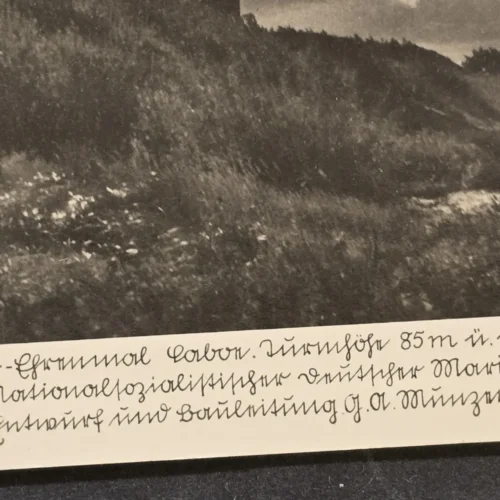 -Ehrenmal Laboe. Turmhöhe 85m ü.
Nationalsozialistischer Deutscher Mari
Entwurf und Bauleitung G.A. Munzer